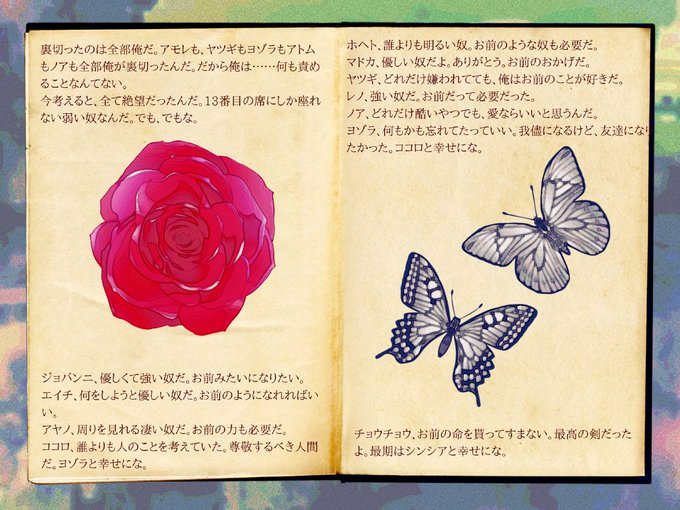 裏切ったのは全部俺だ。アモレも、ヤツギもヨゾラもアトム
もノアも全部俺が裏切ったんだ。だから俺は……何も責め
ることなんてない。
今考えると、全て絶望だったんだ。13番目の席にしか座れ
ない弱い奴なんだ。でも、でもな。
ジョバンニ、優しくて強い奴だ。お前みたいになりたい。
エイチ、何をしようと優しい奴だ。お前のようになれればい
い。
アヤノ、周りを見れる凄い奴だ。お前の力も必要だ。
ココロ、誰よりも人のことを考えていた。尊敬するべき人間
だ。ヨゾラと幸せにな。
ホヘト、誰よりも明るい奴。お前のような奴も必要だ。
マドカ、優しい奴だよ。ありがとう。お前のおかげだ。
ヤツギ、どれだけ嫌われてても、俺はお前のことが好きだ。
レノ、強い奴だ。お前だって必要だった。
ノア、どれだけ酷いやつでも、愛ならいいと思うんだ。
ヨゾラ、何もかも忘れてたっていい。我儘になるけど、友達になり
たかった。ココロと幸せにな。
チョウチョウ、お前の命を貰ってすまない。最高の剣だった
よ。最期はシンシアと幸せにな。